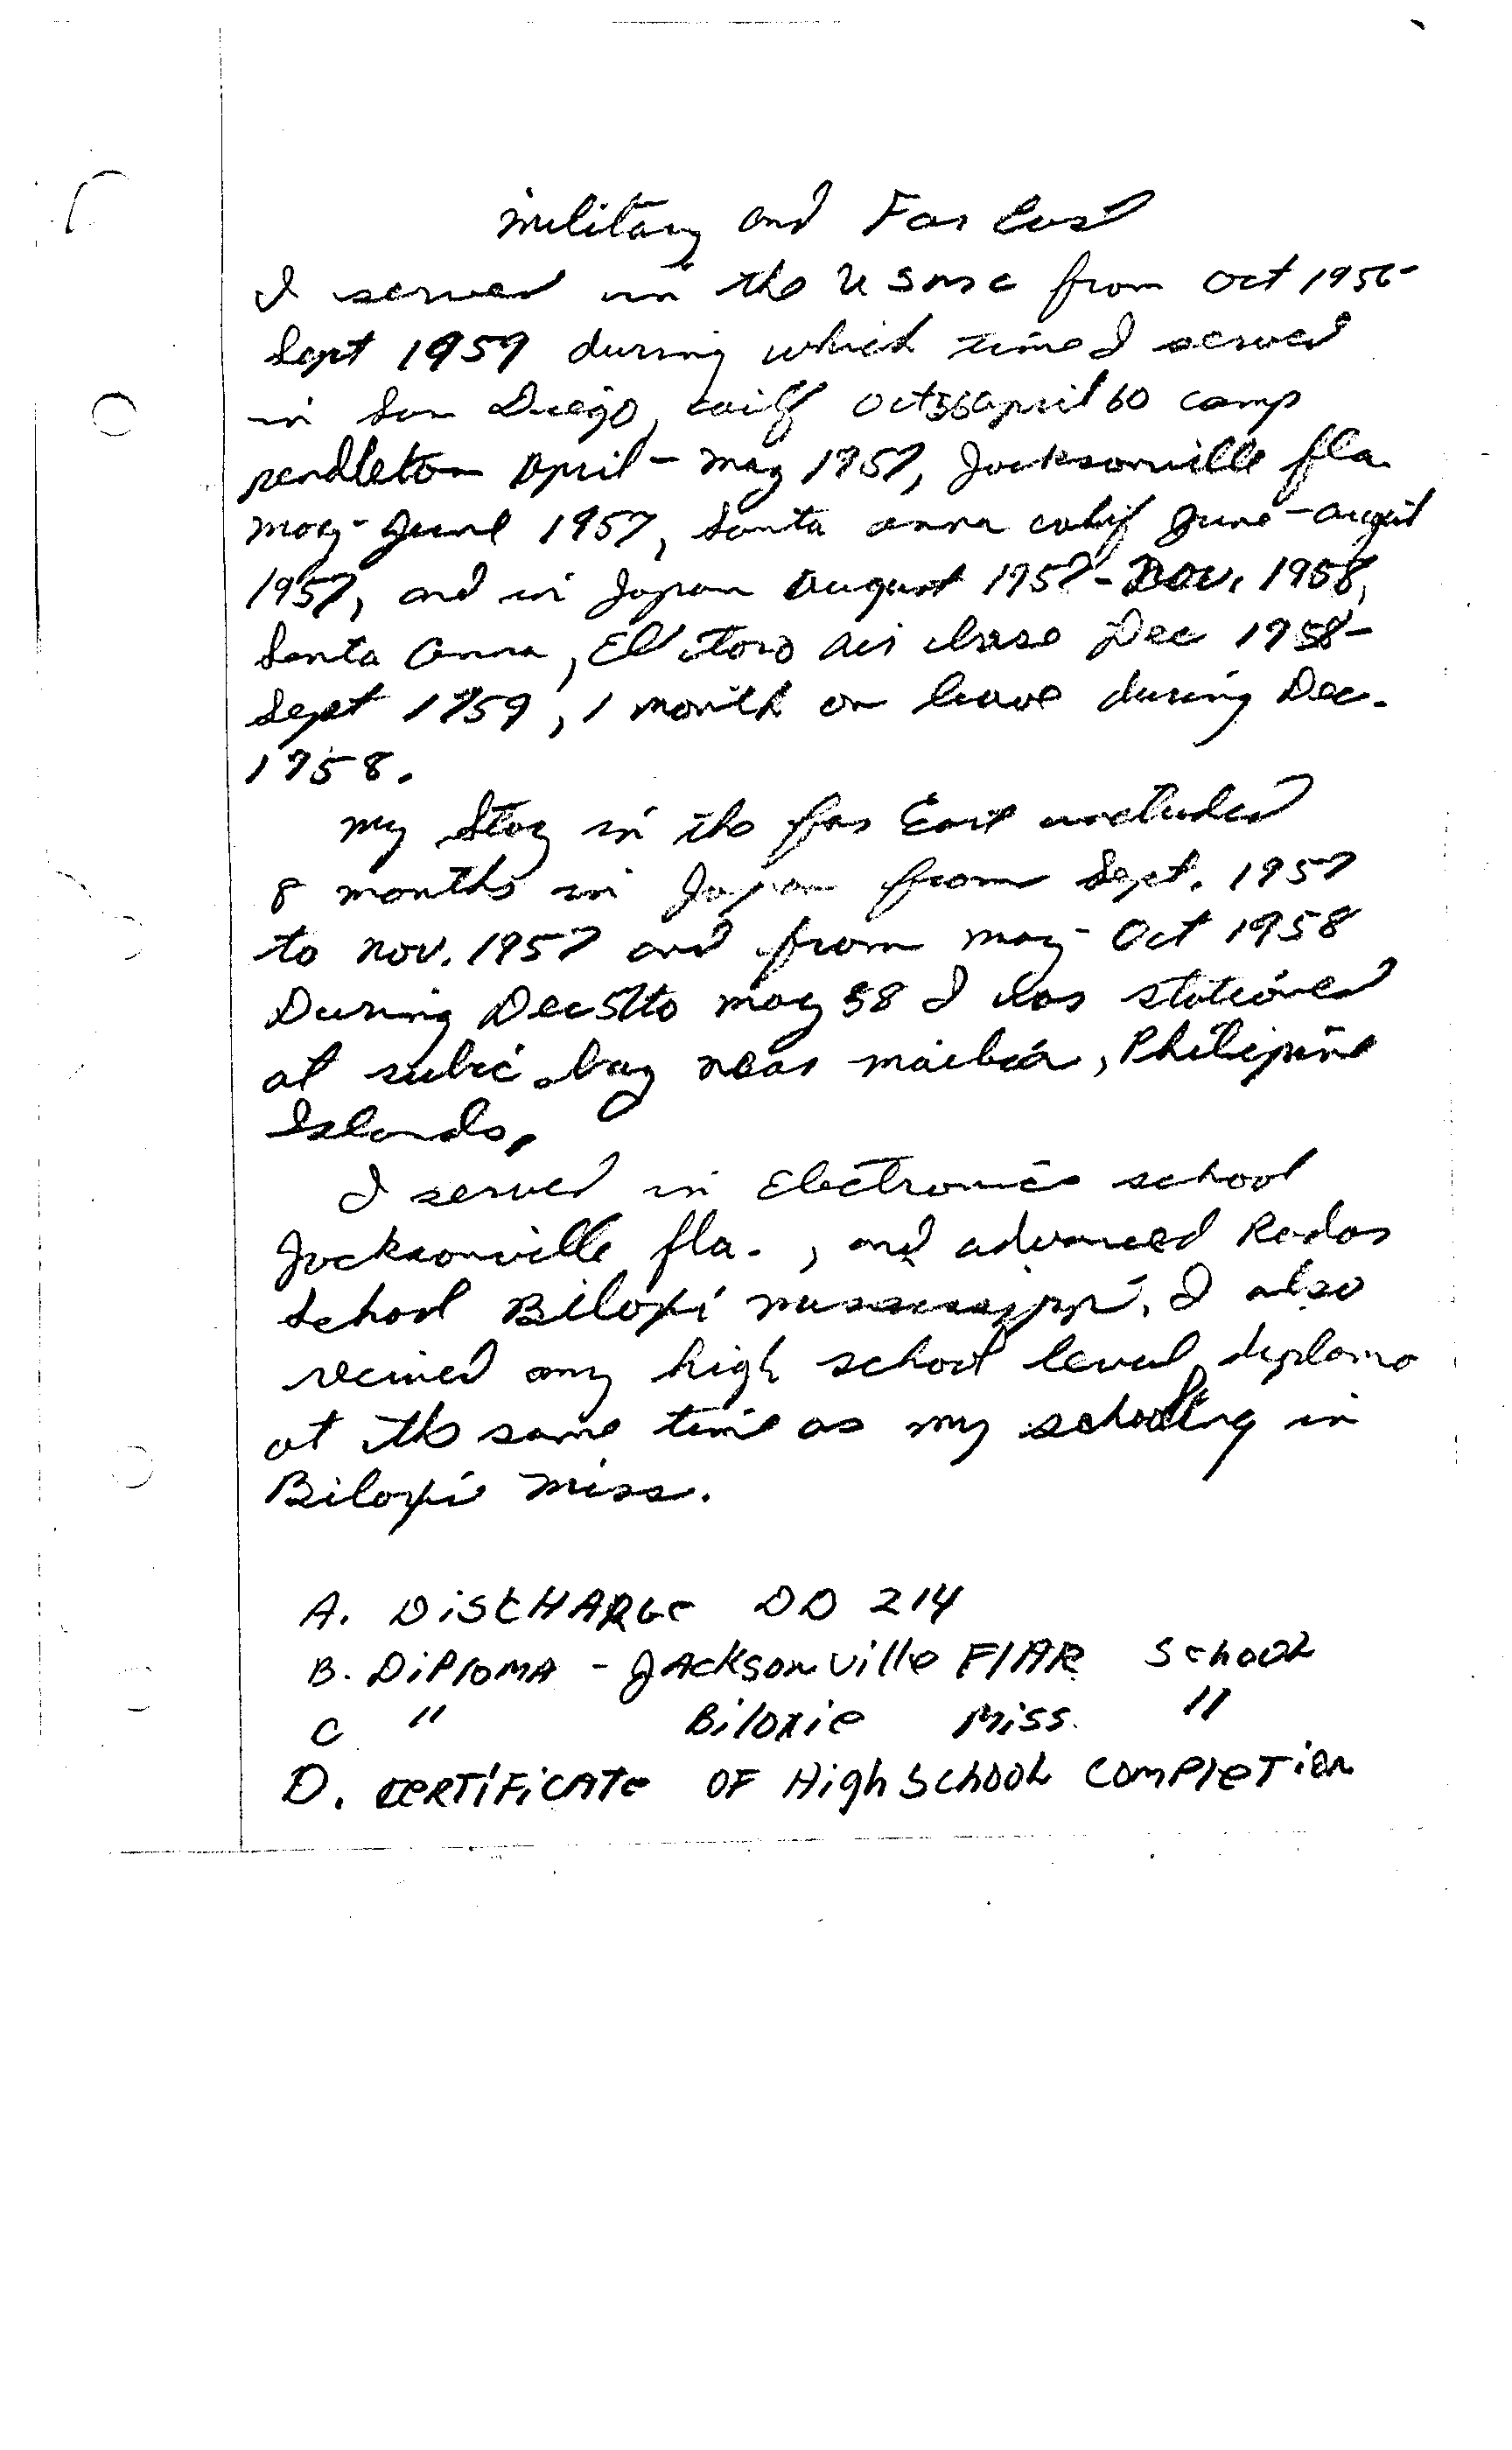 Military and Far East
I served in the USMC from Oct 1956-
Sept 1959 during which time I served
in San Diego, calif Oct 56 april 60 camp
pendleton April - May 1957, Jacksonville fla.
may - June 1957, Santa anna calif June - august
1957, and in Japan August 1957 - Nov. 1958,
Santa Anna, El toro air base Dec 1958-
Sept 1959, 1 month on leave during Dec.
1958.
my Stay in the far East included
8 months in Japan from Sept. 1957
to nov. 1957 and from may - Oct 1958
During Dec 57 to may 58 I was stationed
at subic bay near Philipine
Islands.
I served in Electronics school
Jacksonville fla. , and advanced Radar
School Biloxi mississippi. I also
recived my high school level diploma
at the same time as my schooling in
Biloxi Miss.
A. DiSCHARGe DD 214
B. DiPloMA - JAcksonville FlAR School
C " Biloxie Miss. "
D. CeRTiFiCATe OF High School COMPleTion